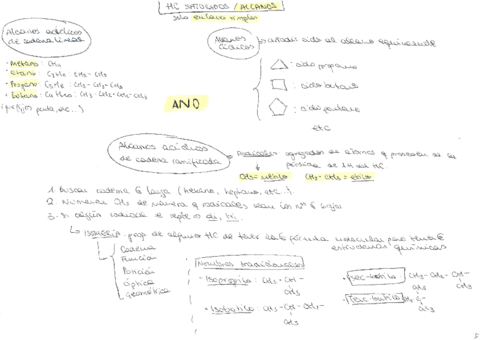 HC SATURADOS / ALCANOS
solo enlaces simples
Alcanos acíclicos
de cadena lineal
· Metano: CH4
· Etano: C2H6 CH3-CH3
· Propano: C3H8: CH3-CH2-CH3
· Butano: C4H10: CH3-CH2-CH2-CH3
(prefijos penta, etc...)
Alcanos
cíclicos
añadir ciclo al alcano equivalente
: ciclo propano
: ciclobutano
: ciclo pentano
etc
ANO
Alcanos acíclicos
de cadena ramificada
Radicales: agregados de átomos q proceden de la
pérdida de 1 H del HC
CH3 = metilo CH3-CH2 = etilo
1. Buscar cadena + larga (hexano, heptano, etc...)
2. Numerar CHs de manera q radicales sean los nos + bajos
3. Si algún radical se repite di, tri.
Isomería: prop de algunos HC de tener la = fórmula molecular pero
estructuras químicas
Cadena
Función
Posición
Óptica
Geométrica
Nombres tradicionales
· Isopropilo: CH3-CH-
CH3
· Isobutilo: CH3-CH-CH2-
CH3
· Sec-butilo: CH3-CH2-CH-
CH3
· Terc-butilo: CH3-C-
CH3